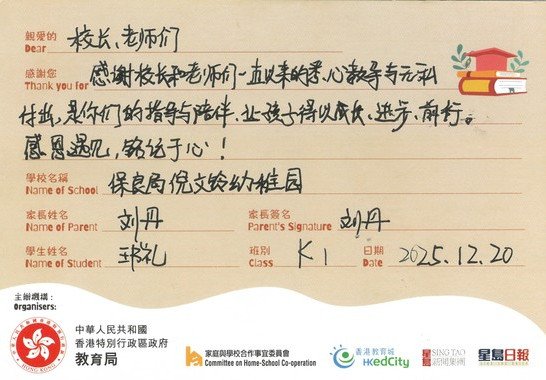 親愛的 校长、老师们
Dear
感謝您 感谢校长和老师们一直以来的悉心教导与无私
Thank you for
付出,是你们的指导与陪伴,让孩子得以成长、进步、前行。
感恩遇见,铭记于心!
學校名稱 保良局倪文玲幼稚园
Name of School
家長姓名 刘丹 家長簽名 刘丹
Name of Parent Parent's Signature
學生姓名 礼 班別 K1 日期 2025.12.20
Name of Student Class Date
主辦機構:
Organisers:
HONG KONG
中華人民共和國
香港特別行政區政府
教育局
家庭與學校合作事宜委員會
Committee on Home-School Co-operation
香港教育城
HKedCity
星島 SING TAO
新聞集團
星島日報